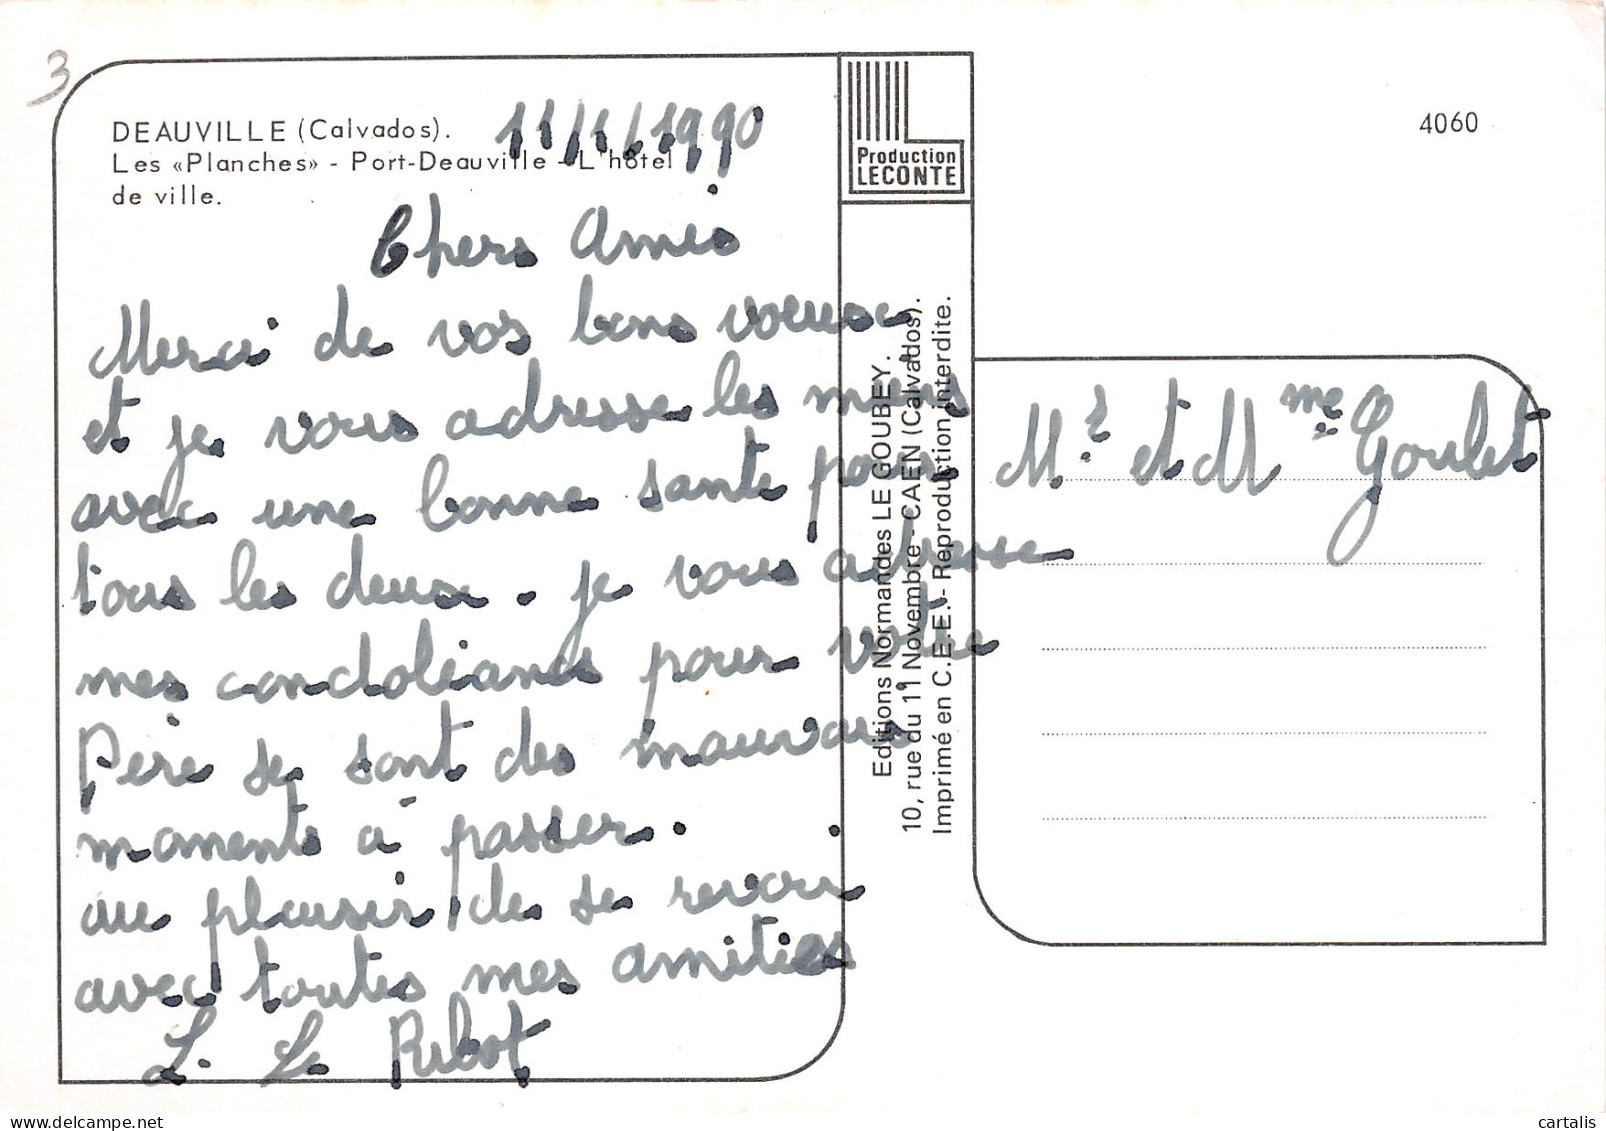 3
DEAUVILLE (Calvados).
Les «Planches» - Port-Deauville - L'hôtel
de ville.
11/1/1990
Chers Amis
Merci de vos bons voeuse
et je vous adresse les miens
avec une bonne sante pour
tous les deux. je vous adresse
mes condoléances pour votre
Père se sont des mauvais
moments à passer.
au plaisir de se revoir
avec toutes mes amitiés
L. Le Ribot
Production
LECONTE
Editions Normandes LE GOUBEY.
10, rue du 11 Novembre - CAEN (Calvados).
Imprimé en C.E.E. - Reproduction interdite.
4060
Mr. et Mme Goulet
www.delcampe.net
cartalis